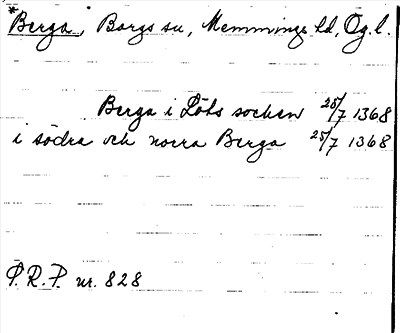 *Berga, Borgs sn, Memmings hd, Ög.l.
Berga i Löts socken 25/7 1368
i södra och norra Berga 25/7 1368
P.R.P. nr. 828